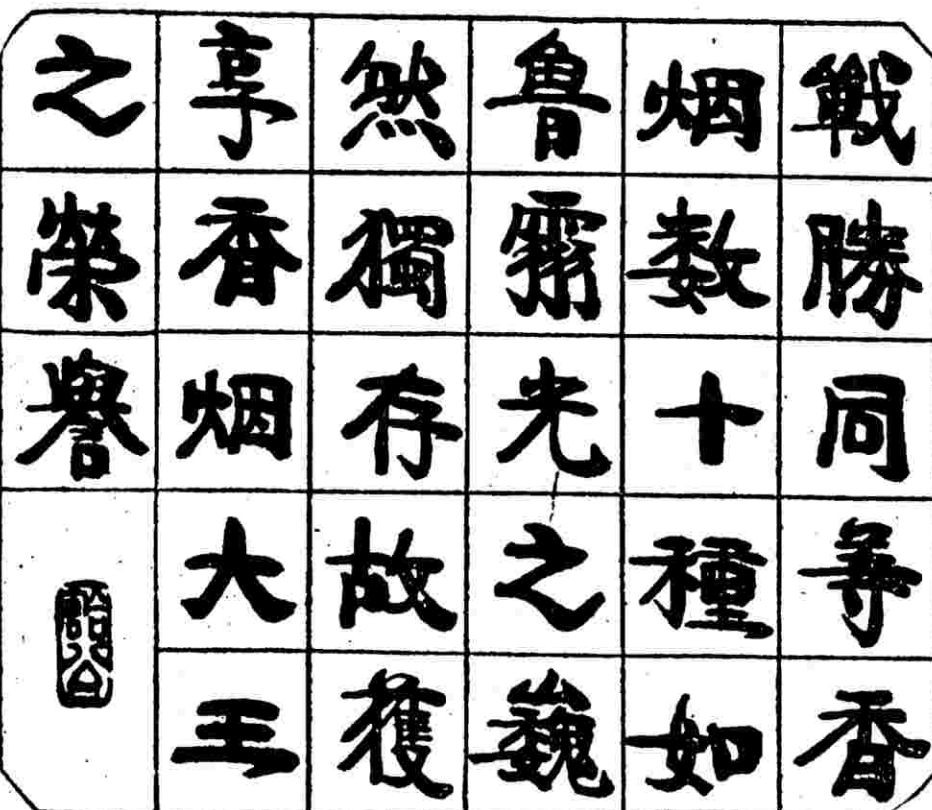 戰勝同等香
烟数十種如
魯霛光之巍
然獨存故獲
享香烟大王
之榮譽